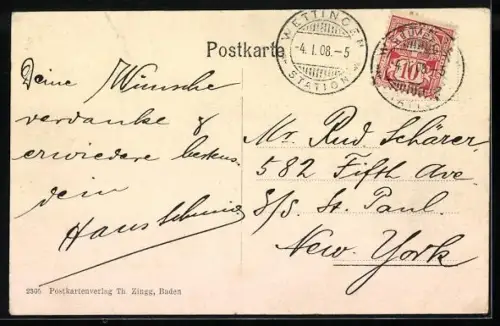 Postkarte
WETTINGEN
-4. I. 08.-5
STATION
10
Deine Wünsche
verdanke &
erwiedere bestens
dein
Hans
Mr. Rud. Schärer,
582 Fifth Ave.
S/S. St. Paul.
New. York
2305 Postkartenverlag Th. Zingg, Baden